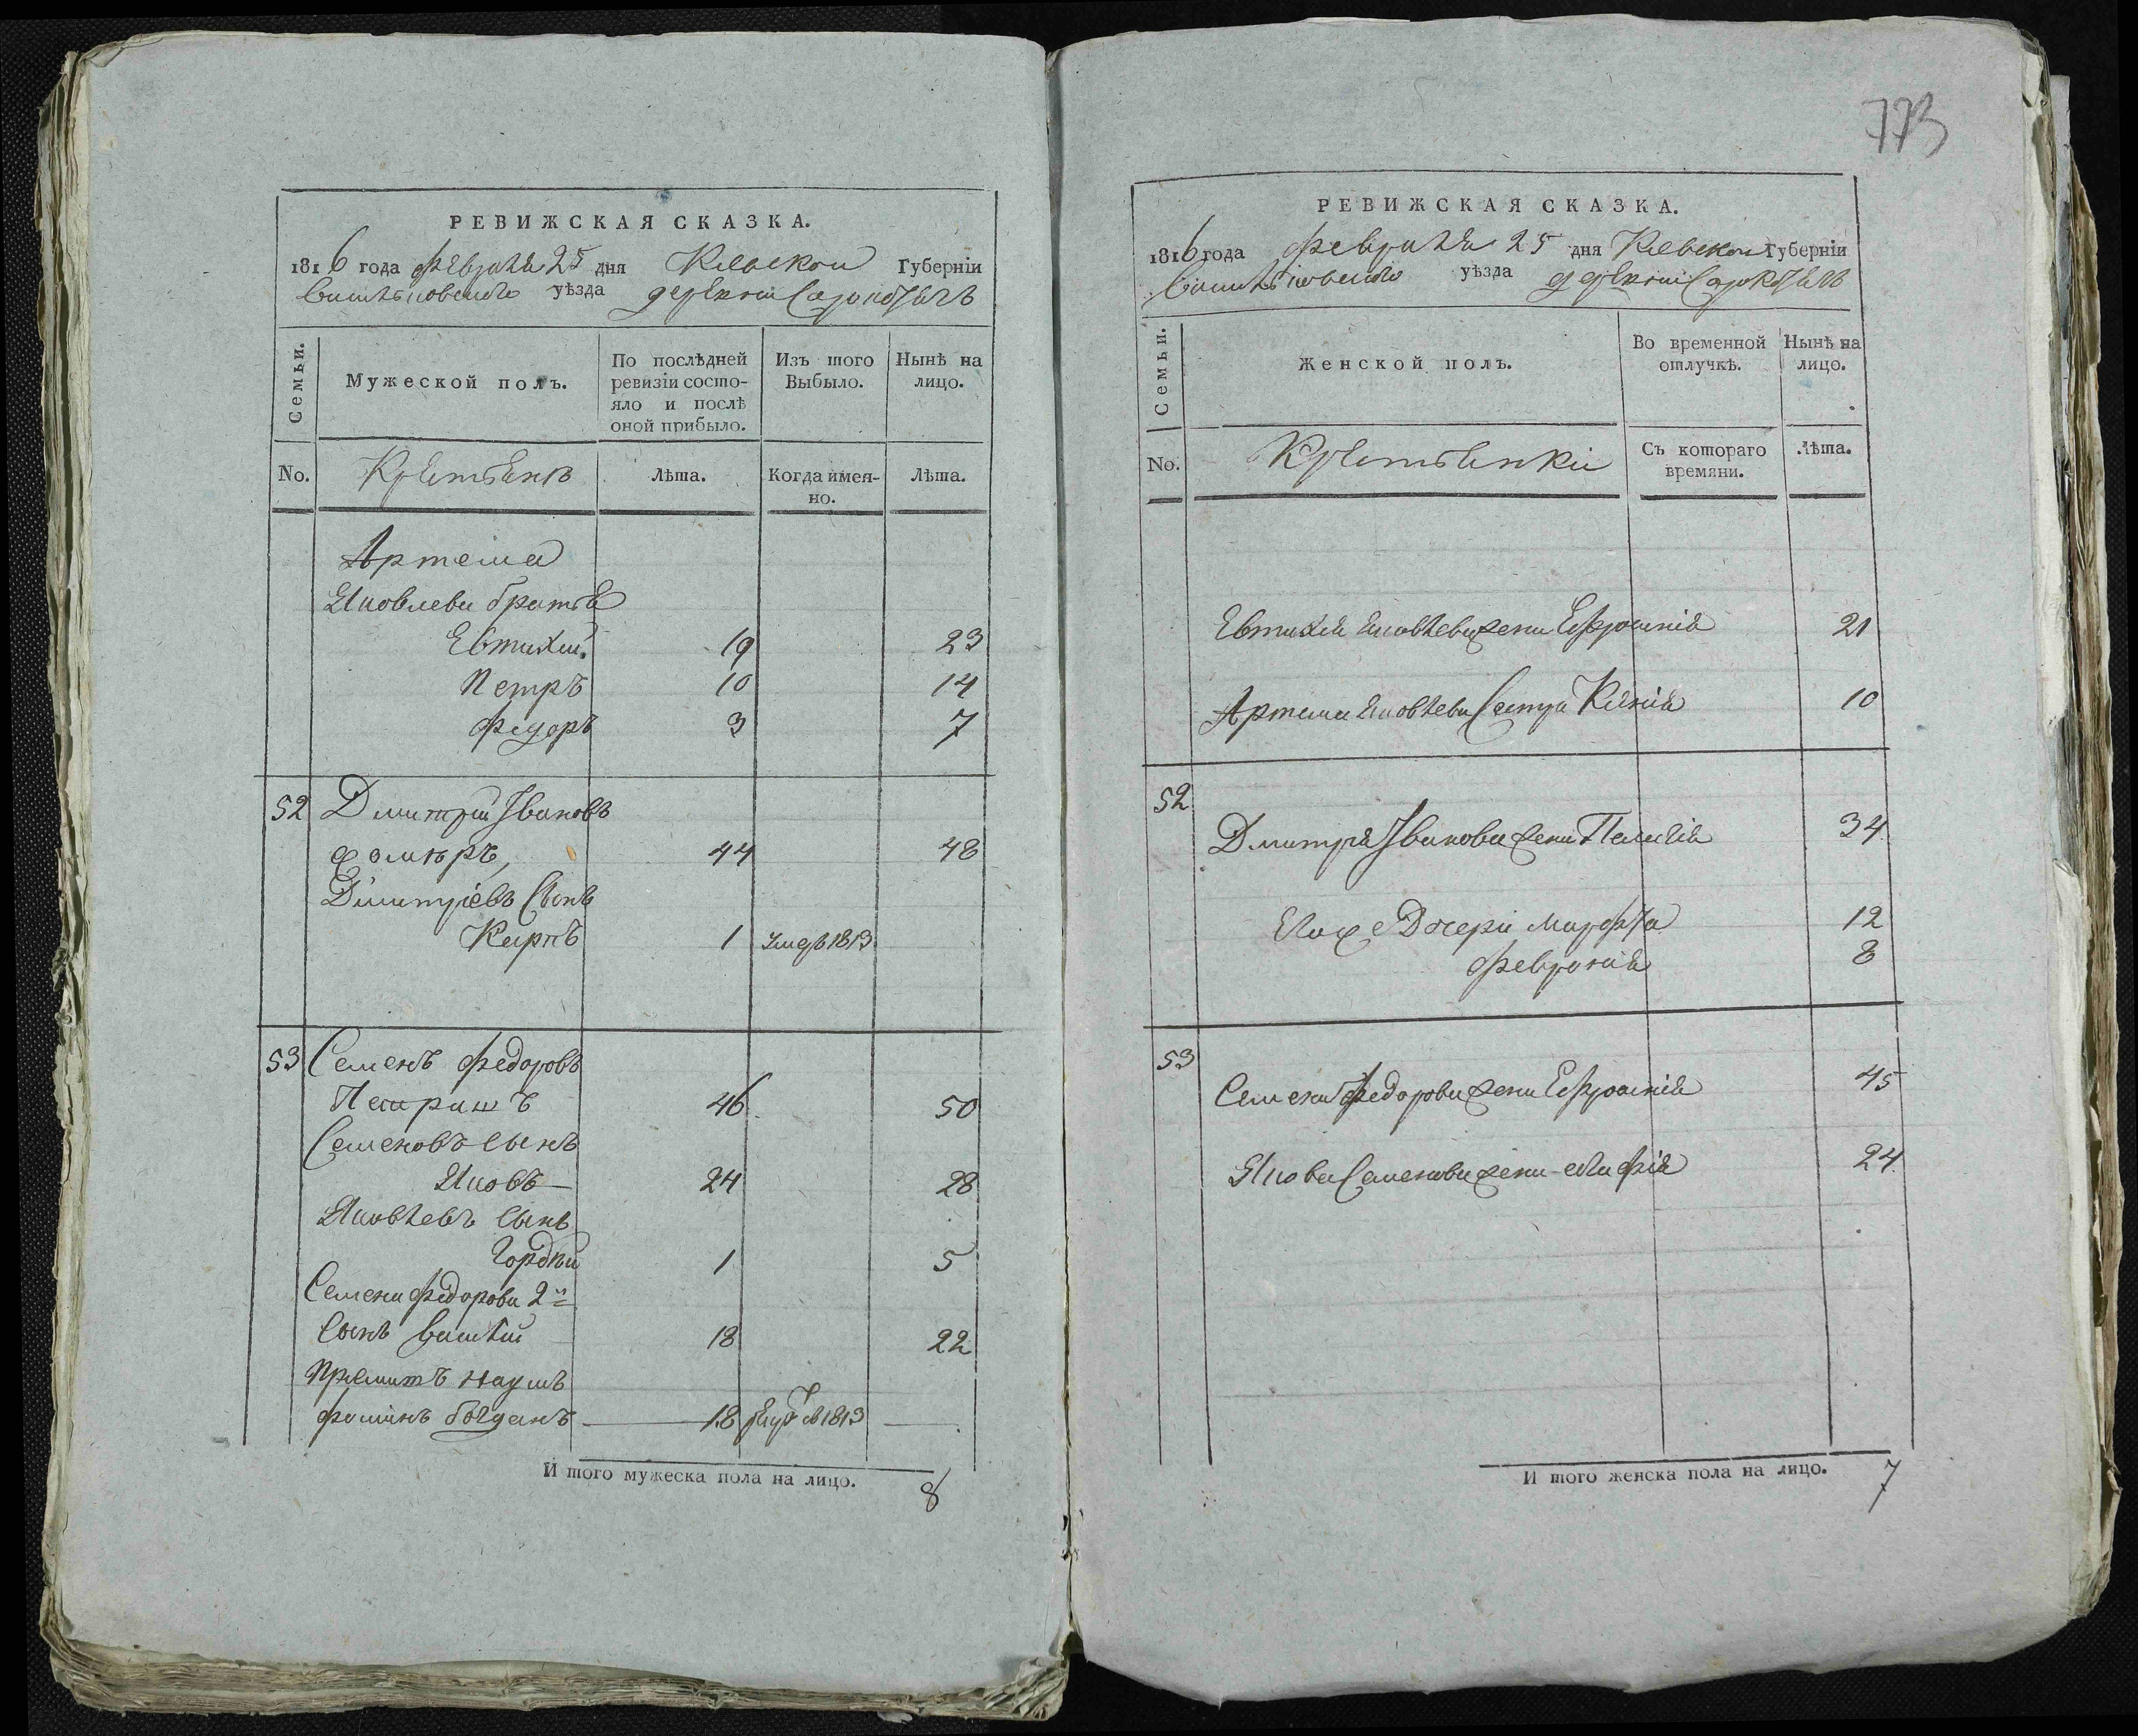 773
РЕВИЖСКАЯ СКАЗКА.
1816 года февраля 25 дня Киевской Губерніи
Васильковского уѣзда деревни
Семьи.
Мужеской полъ.
По послѣдней ревизіи состо-
яло и послѣ
оной прибыло.
Изъ того
Выбыло.
Нынѣ на
лицо.
No.
Крестьянъ
Лѣта.
Когда имян-
но.
Лѣта.
Артема
Яковлева братья
Евтихий 19 23
Петръ 10 14
Федоръ 3 7
52 Дмитрий Ивановъ
44 48
Дмитріевъ Сынъ
Карпъ 1 умеръ 1813
53 Семенъ Федоровъ
46 50
Семеновъ сынъ
Яковъ 24 28
Яковлевъ сынъ
Гордѣй 1 5
Семена Федорова 2й
сынъ Василий 18 22
Наумъ
18 1813
И того мужеска пола на лицо. 8
РЕВИЖСКАЯ СКАЗКА.
1816 года февраля 25 дня Киевской Губерніи
Васильковского уѣзда деревни
Семьи.
Женской полъ.
Во временной
отлучкѣ.
Нынѣ на
лицо.
No.
Крестьянки
Съ котораго
времяни.
Лѣта.
Евтихия Яковлева жена Ефросинія 21
Артема Яковлева Сестра Ксенія 10
52
Дмитрия Иванова жена Пелагія 34
Его же Дочери Марфа 12
Феврония 8
53
Семена Федорова жена Ефросинія 45
Якова Семенова жена 24
И того женска пола на лицо. 7